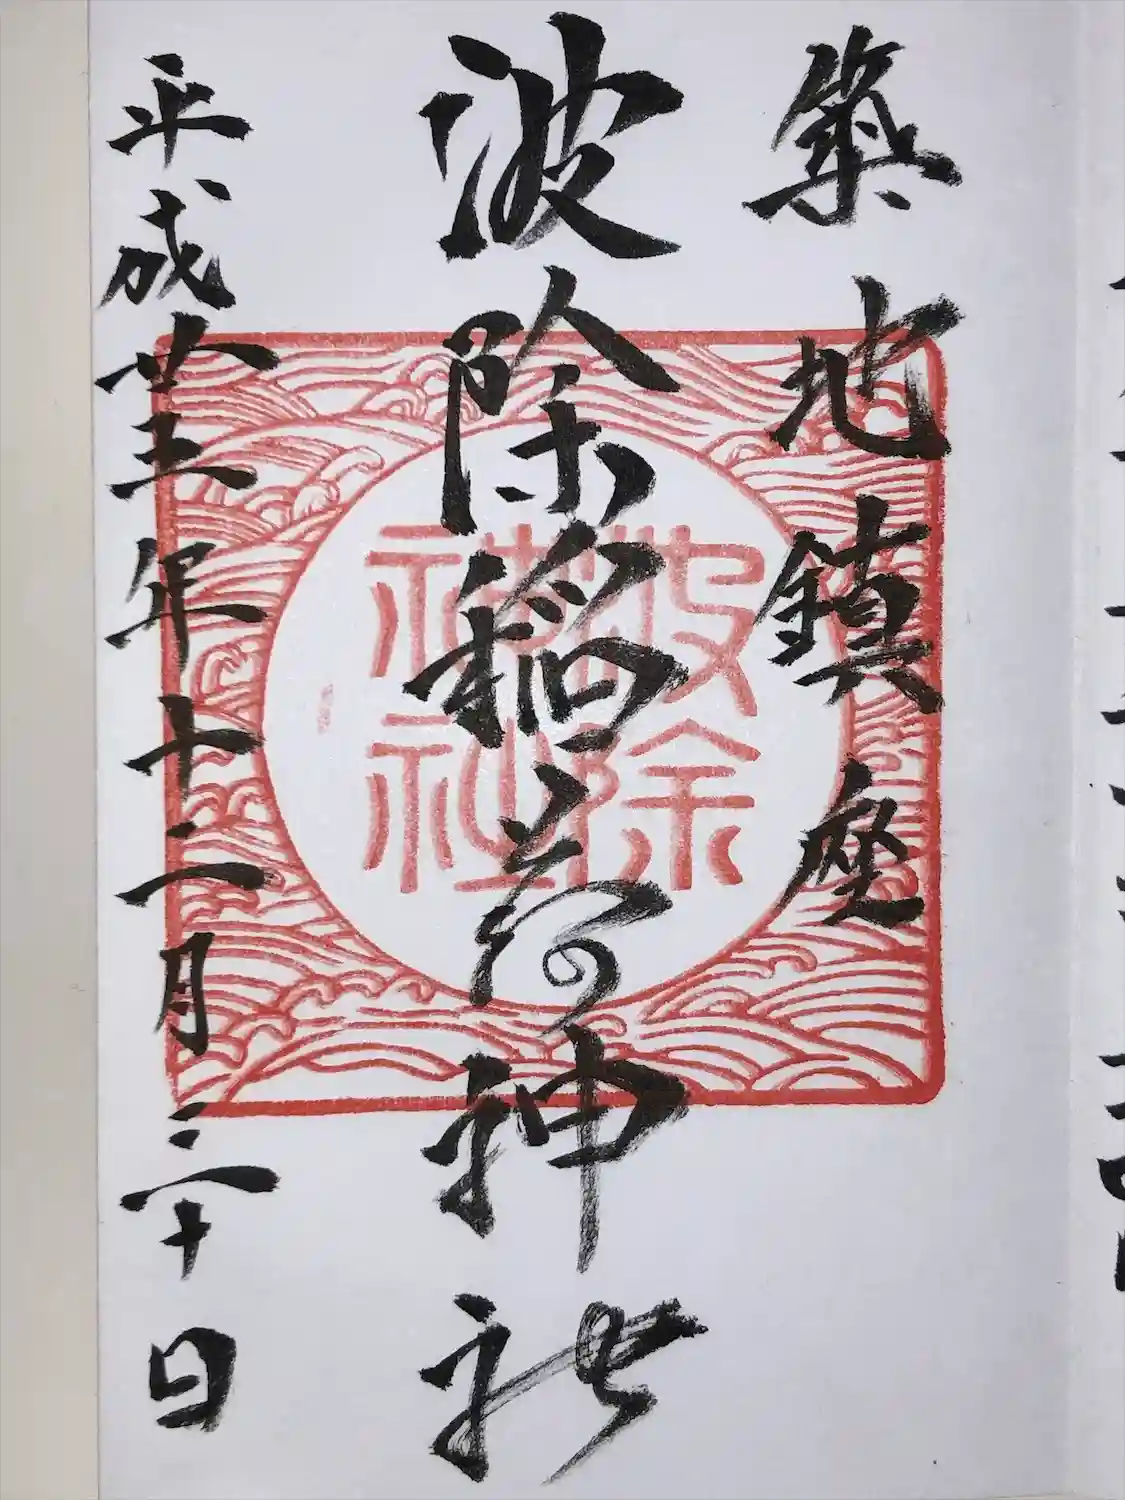 築地鎮座
波除稲荷神社
平成廿三年十二月三十日
波除
神社